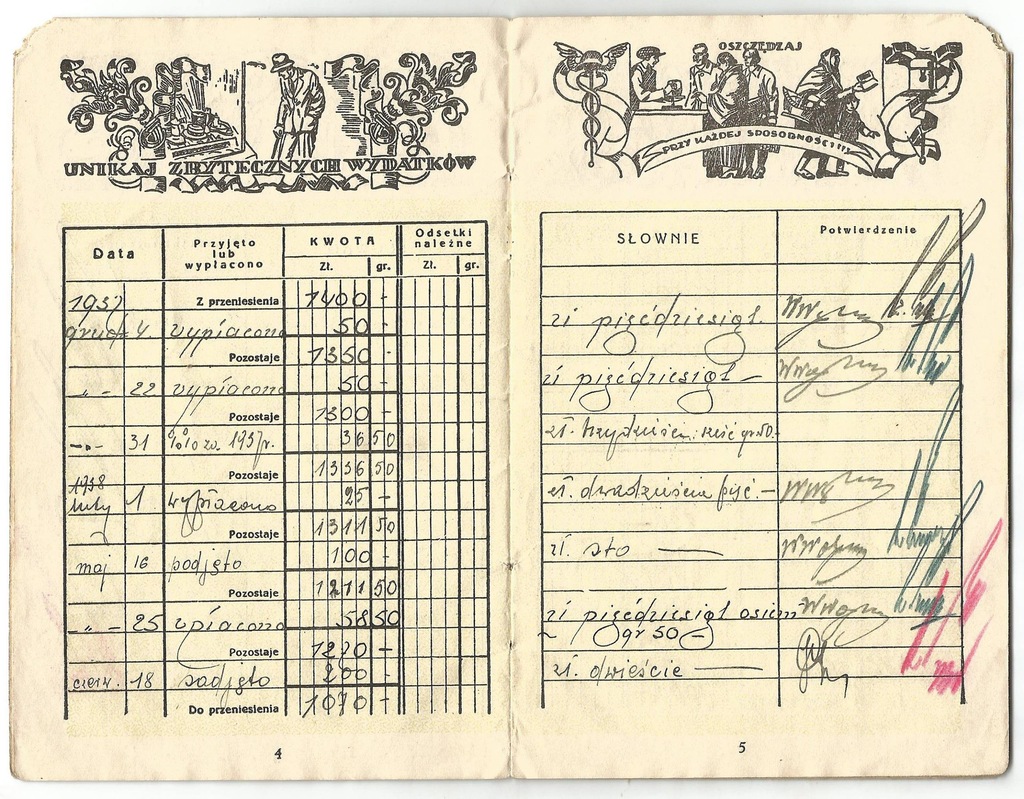 UNIKAJ ZBYTECZNYCH WYDATKÓW
Data
Przyjęto lub wypłacono
KWOTA
Zł. gr.
Odsetki należne
Zł. gr.
1937 Z przeniesienia 1400 -
grud. 4. wypłacono 50 -
Pozostaje 1350 -
-"- 22 wypłacono 50 -
Pozostaje 1300 -
-"- 31 %% za 1937 r. 36 50
Pozostaje 1336 50
1938
luty 1 wypłacono 25 -
Pozostaje 1311 50
maj 16 podjęto 100 -
Pozostaje 1211 50
-"- 25 wpłacono 58 50
Pozostaje 1270 -
czerw. 18 podjęto 200 -
Do przeniesienia 1070 -
4
OSZCZĘDZAJ
PRZY KAŻDEJ SPOSOBNOŚCI!!!
SŁOWNIE
Potwierdzenie
zł pięćdziesiąt.
zł pięćdziesiąt -
zł. trzydzieści sześć gr 50.-
zł. dwadzieścia pięć.-
zł. sto -
zł pięćdziesiąt osiem
gr 50 -
zł. dwieście -
5